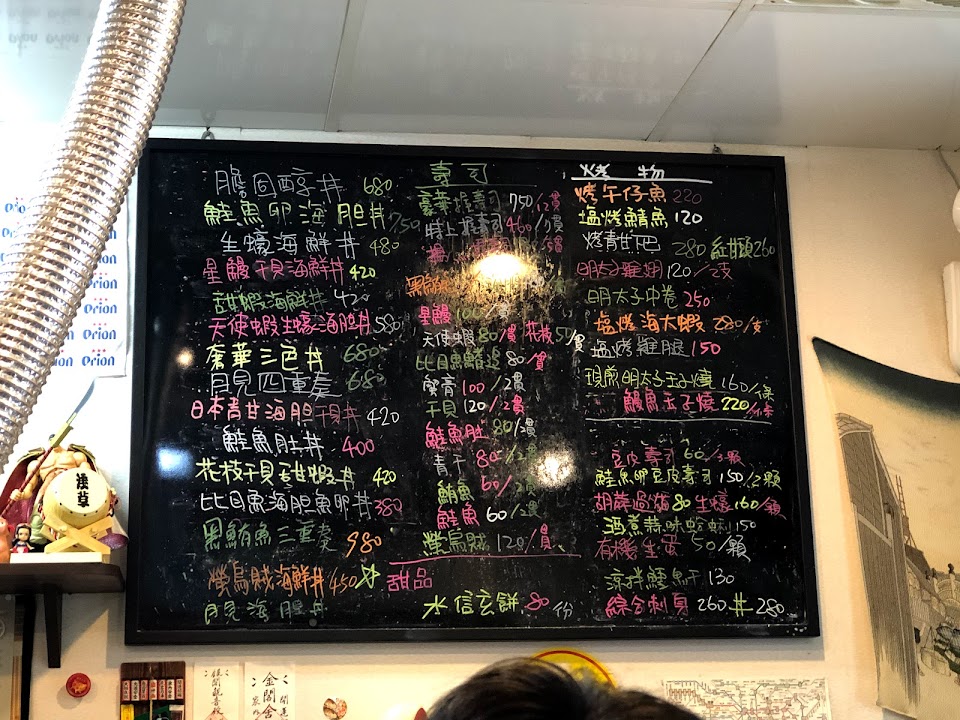 膽固醇丼 680
鮭魚卵海胆丼 750
生蠔海鮮丼 480
星鰻干貝海鮮丼 420
甜蝦海鮮丼 420
天使蝦生蠔海胆丼 580
奢華三色丼 680
月見四重奏 680
日本青甘海胆干貝丼 420
鮭魚肚丼 400
花枝干貝甜蝦丼 420
比目魚海胆魚卵丼 380
黑鮪魚三重奏 980
螢烏賊海鮮丼 450
月見海胆丼
壽司
豪華握壽司 750/12貫
特上握壽司 460
星鰻 100/貫
天使蝦 80/貫 花枝 5/貫
比目魚鰭邊 80/貫
蟹膏 100/2貫
干貝 120/2貫
鮭魚肚 80/2貫
青干 80/2貫
鮪魚 60/2貫
鮭魚 60/2貫
螢烏賊 120/貫
甜品
水信玄餅 80 份
烤物
烤午仔魚 220
塩烤鯖魚 120
烤青甘 280 紅甘頭 260
明太子雞翅 120/支
明太子中卷 250
塩烤海大蝦 280/支
塩烤雞腿 150
現煎明太子玉子燒 160/條
鰻魚玉子燒 220/條
豆皮壽司 60/2顆
鮭魚卵豆皮壽司 150/2顆
胡麻過貓 80 生蠔 160/顆
酒煮蒜味蛤蜊 150
有機生蛋 50/顆
涼拌鱈魚干 130
綜合刺身 260 丼 280
Orion
Orion
Orion
Orion
Orion
浅草
金閣舍